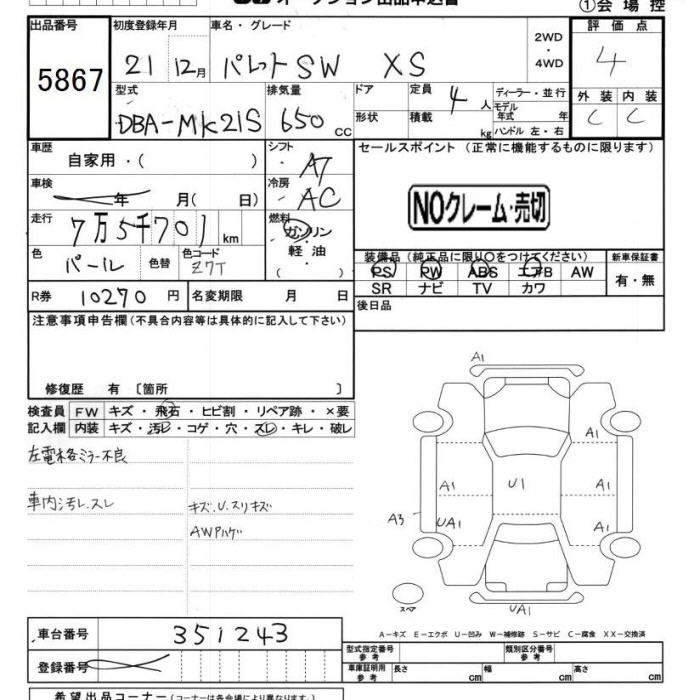 オークション出品申込書
①会場控
出品番号 初度登録年月 車名・グレード 評価点
5867 21 12月 パレットSW XS 2WD・4WD 4
型式 排気量 ドア 定員 4人 ディーラー・並行 外装 内装
モデル年式 年
DBA-MK21S 650CC 形状 積載 kg ハンドル 左・右 C C
車歴 シフト セールスポイント（正常に機能するものに限ります）
自家用・（ ） AT
車検 冷房
年 月（ 日） AC NOクレーム・売切
走行 燃料
7万5千701km ガソリン・軽油・（ ）
色 色替 色コード 装備品（純正品に限り○をつけてください） 新車保証書
パール Z7T PS PW ABS エアB AW 有・無
SR ナビ TV カワ
R券 10270円 名変期限 月 日 後日品
注意事項申告欄（不具合内容等は具体的に記入して下さい）
修復歴 有〔箇所 〕
検査員 FW キズ・飛石・ヒビ割・リペア跡・×要
記入欄 内装 キズ・汚レ・コゲ・穴・スレ・キレ・破レ
左電格ミラー不良
車内汚レ.スレ キズ.U.スリキズ
AWハゲ
A1
A1
A1 U1 A1
A3 UA1 A1
スペア UA1
A－キズ E－エクボ U－凹み W－補修跡 S－サビ C－腐食 XX－交換済
車台番号 351243
型式指定番号参考 類別区分番号参考
登録番号
車庫証明用参考 長さ cm 幅 cm 高さ cm
希望出品コーナー（コーナーは各会場により異なります）